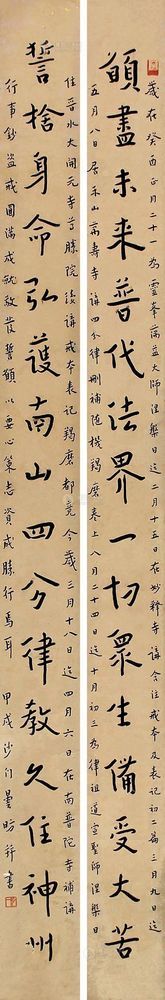 歲在癸酉正月二十一為靈峯蕅益大師涅槃日迄二月十五在妙釋寺講含注戒本及表記初二篇三月九日迄
願盡未来普代法界一切眾生備受大苦
五月八日居禾山萬壽寺講四分律刪補隨機羯磨卷上八月二十四日迄十月初三為律祖道宣聖師涅槃日
住晉水大開元寺尊勝院後講戒本表記羯磨都竟今歲三月十八日迄四月六日在南普陀寺補講
誓捨身命弘護南山四分律教久住神州
行事鈔盜戒圓滿成就敬發誓願以要心策志資成勝行焉耳 甲戌沙門曇昉并書